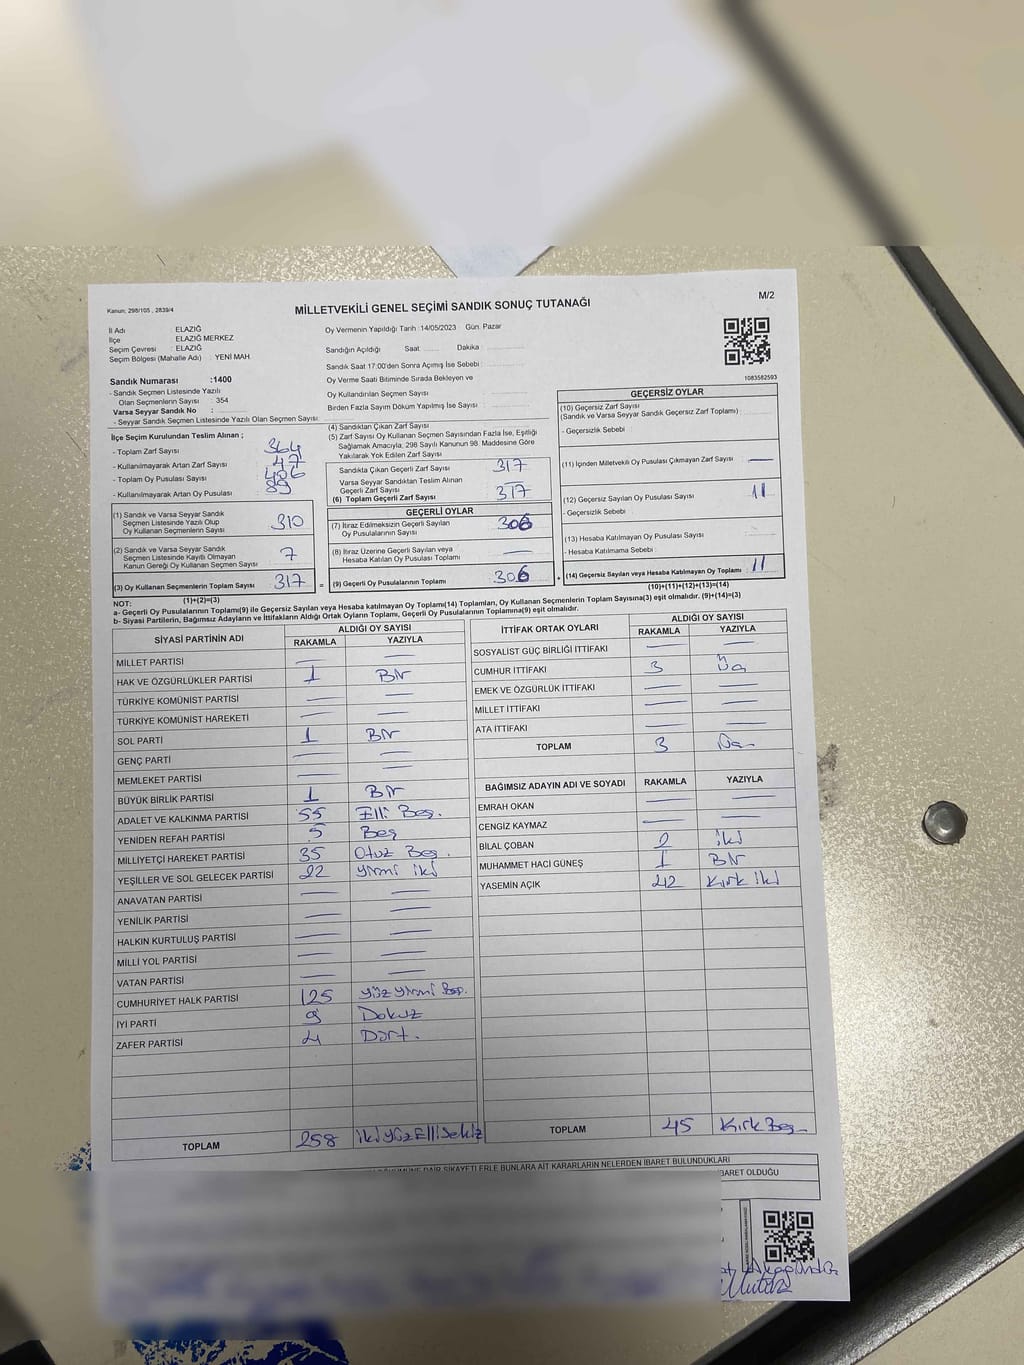 M/2
Kanun: 298/105 , 2839/4
MİLLETVEKİLİ GENEL SEÇİMİ SANDIK SONUÇ TUTANAĞI
İl Adı : ELAZIĞ
İlçe : ELAZIĞ MERKEZ
Seçim Çevresi : ELAZIĞ
Seçim Bölgesi (Mahalle Adı) : YENİ MAH.
Sandık Numarası :1400
- Sandık Seçmen Listesinde Yazılı
Olan Seçmenlerin Sayısı : 354
Varsa Seyyar Sandık No :
- Seyyar Sandık Seçmen Listesinde Yazılı Olan Seçmen Sayısı
Oy Vermenin Yapıldığı Tarih :14/05/2023 Gün: Pazar
Sandığın Açıldığı Saat Dakika :
Sandık Saat 17:00'den Sonra Açımış İse Sebebi :
Oy Verme Saati Bitiminde Sırada Bekleyen ve
Oy Kullandırılan Seçmen Sayısı :
Birden Fazla Sayım Döküm Yapılmış İse Sayısı :
1083582593
İlçe Seçim Kurulundan Teslim Alınan ;
- Toplam Zarf Sayısı : 364
- Kullanılmayarak Artan Zarf Sayısı : 47
- Toplam Oy Pusulası Sayısı : 406
- Kullanılmayarak Artan Oy Pusulası : 89
(1) Sandık ve Varsa Seyyar Sandık
Seçmen Listesinde Yazılı Olup
Oy Kullanan Seçmenlerin Sayısı : 310
(2) Sandık ve Varsa Seyyar Sandık
Seçmen Listesinde Kayıtlı Olmayan
Kanun Gereği Oy Kullanan Seçmen Sayısı : 7
(3) Oy Kullanan Seçmenlerin Toplam Sayısı : 317
(1)+(2)=(3)
(4) Sandıktan Çıkan Zarf Sayısı
(5) Zarf Sayısı Oy Kullanan Seçmen Sayısından Fazla İse, Eşitliği
Sağlamak Amacıyla, 298 Sayılı Kanunun 98. Maddesine Göre
Yakılarak Yok Edilen Zarf Sayısı :
Sandıkta Çıkan Geçerli Zarf Sayısı 317
Varsa Seyyar Sandıktan Teslim Alınan
Geçerli Zarf Sayısı
(6) Toplam Geçerli Zarf Sayısı 317
GEÇERLİ OYLAR
(7) İtiraz Edilmeksizin Geçerli Sayılan
Oy Pusulalarının Sayısı : 306
(8) İtiraz Üzerine Geçerli Sayılan veya
Hesaba Katılan Oy Pusulası Toplamı : —
= (9) Geçerli Oy Pusulalarının Toplamı : 306
GEÇERSİZ OYLAR
(10) Geçersiz Zarf Sayısı
(Sandık ve Varsa Seyyar Sandık Geçersiz Zarf Toplamı) :
- Geçersizlik Sebebi :
(11) İçinden Milletvekili Oy Pusulası Çıkmayan Zarf Sayısı : —
(12) Geçersiz Sayılan Oy Pusulası Sayısı : 11
- Geçersizlik Sebebi :
(13) Hesaba Katılmayan Oy Pusulası Sayısı :
- Hesaba Katılmama Sebebi :
+ (14) Geçersiz Sayılan veya Hesaba Katılmayan Oy Toplamı : 11
(10)+(11)+(12)+(13)=(14)
NOT:
a- Geçerli Oy Pusulalarının Toplamı(9) ile Geçersiz Sayılan veya Hesaba katılmayan Oy Toplamı(14) Toplamları, Oy Kullanan Seçmenlerin Toplam Sayısına(3) eşit olmalıdır. (9)+(14)=(3)
b- Siyasi Partilerin, Bağımsız Adayların ve İttifakların Aldığı Ortak Oyların Toplamı, Geçerli Oy Pusulalarının Toplamına(9) eşit olmalıdır.
SİYASİ PARTİNİN ADI ALDIĞI OY SAYISI
RAKAMLA YAZIYLA
MİLLET PARTİSİ — —
HAK VE ÖZGÜRLÜKLER PARTİSİ 1 Bir
TÜRKİYE KOMÜNİST PARTİSİ — —
TÜRKİYE KOMÜNİST HAREKETİ — —
SOL PARTİ 1 Bir
GENÇ PARTİ — —
MEMLEKET PARTİSİ — —
BÜYÜK BİRLİK PARTİSİ 1 Bir
ADALET VE KALKINMA PARTİSİ 55 Elli Beş.
YENİDEN REFAH PARTİSİ 5 Beş
MİLLİYETÇİ HAREKET PARTİSİ 35 Otuz Beş.
YEŞİLLER VE SOL GELECEK PARTİSİ 22 yirmi iki
ANAVATAN PARTİSİ — —
YENİLİK PARTİSİ — —
HALKIN KURTULUŞ PARTİSİ — —
MİLLİ YOL PARTİSİ — —
VATAN PARTİSİ — —
CUMHURİYET HALK PARTİSİ 125 yüz yirmi Beş.
İYİ PARTİ 9 Dokuz
ZAFER PARTİSİ 4 Dört.
TOPLAM 258 iki yüz Elli Sekiz
İTTİFAK ORTAK OYLARI ALDIĞI OY SAYISI
RAKAMLA YAZIYLA
SOSYALİST GÜÇ BİRLİĞİ İTTİFAKI — —
CUMHUR İTTİFAKI 3 Üç
EMEK VE ÖZGÜRLÜK İTTİFAKI — —
MİLLET İTTİFAKI — —
ATA İTTİFAKI — —
TOPLAM 3 Üç
BAĞIMSIZ ADAYIN ADI VE SOYADI RAKAMLA YAZIYLA
EMRAH OKAN — —
CENGİZ KAYMAZ — —
BİLAL ÇOBAN 2 iki
MUHAMMET HACI GÜNEŞ 1 Bir
YASEMİN AÇIK 42 Kırk iki
TOPLAM 45 Kırk Beş
DAİR ŞİKAYETLERLE BUNLARA AİT KARARLARIN NELERDEN İBARET BULUNDUKLARI
İBARET OLDUĞU